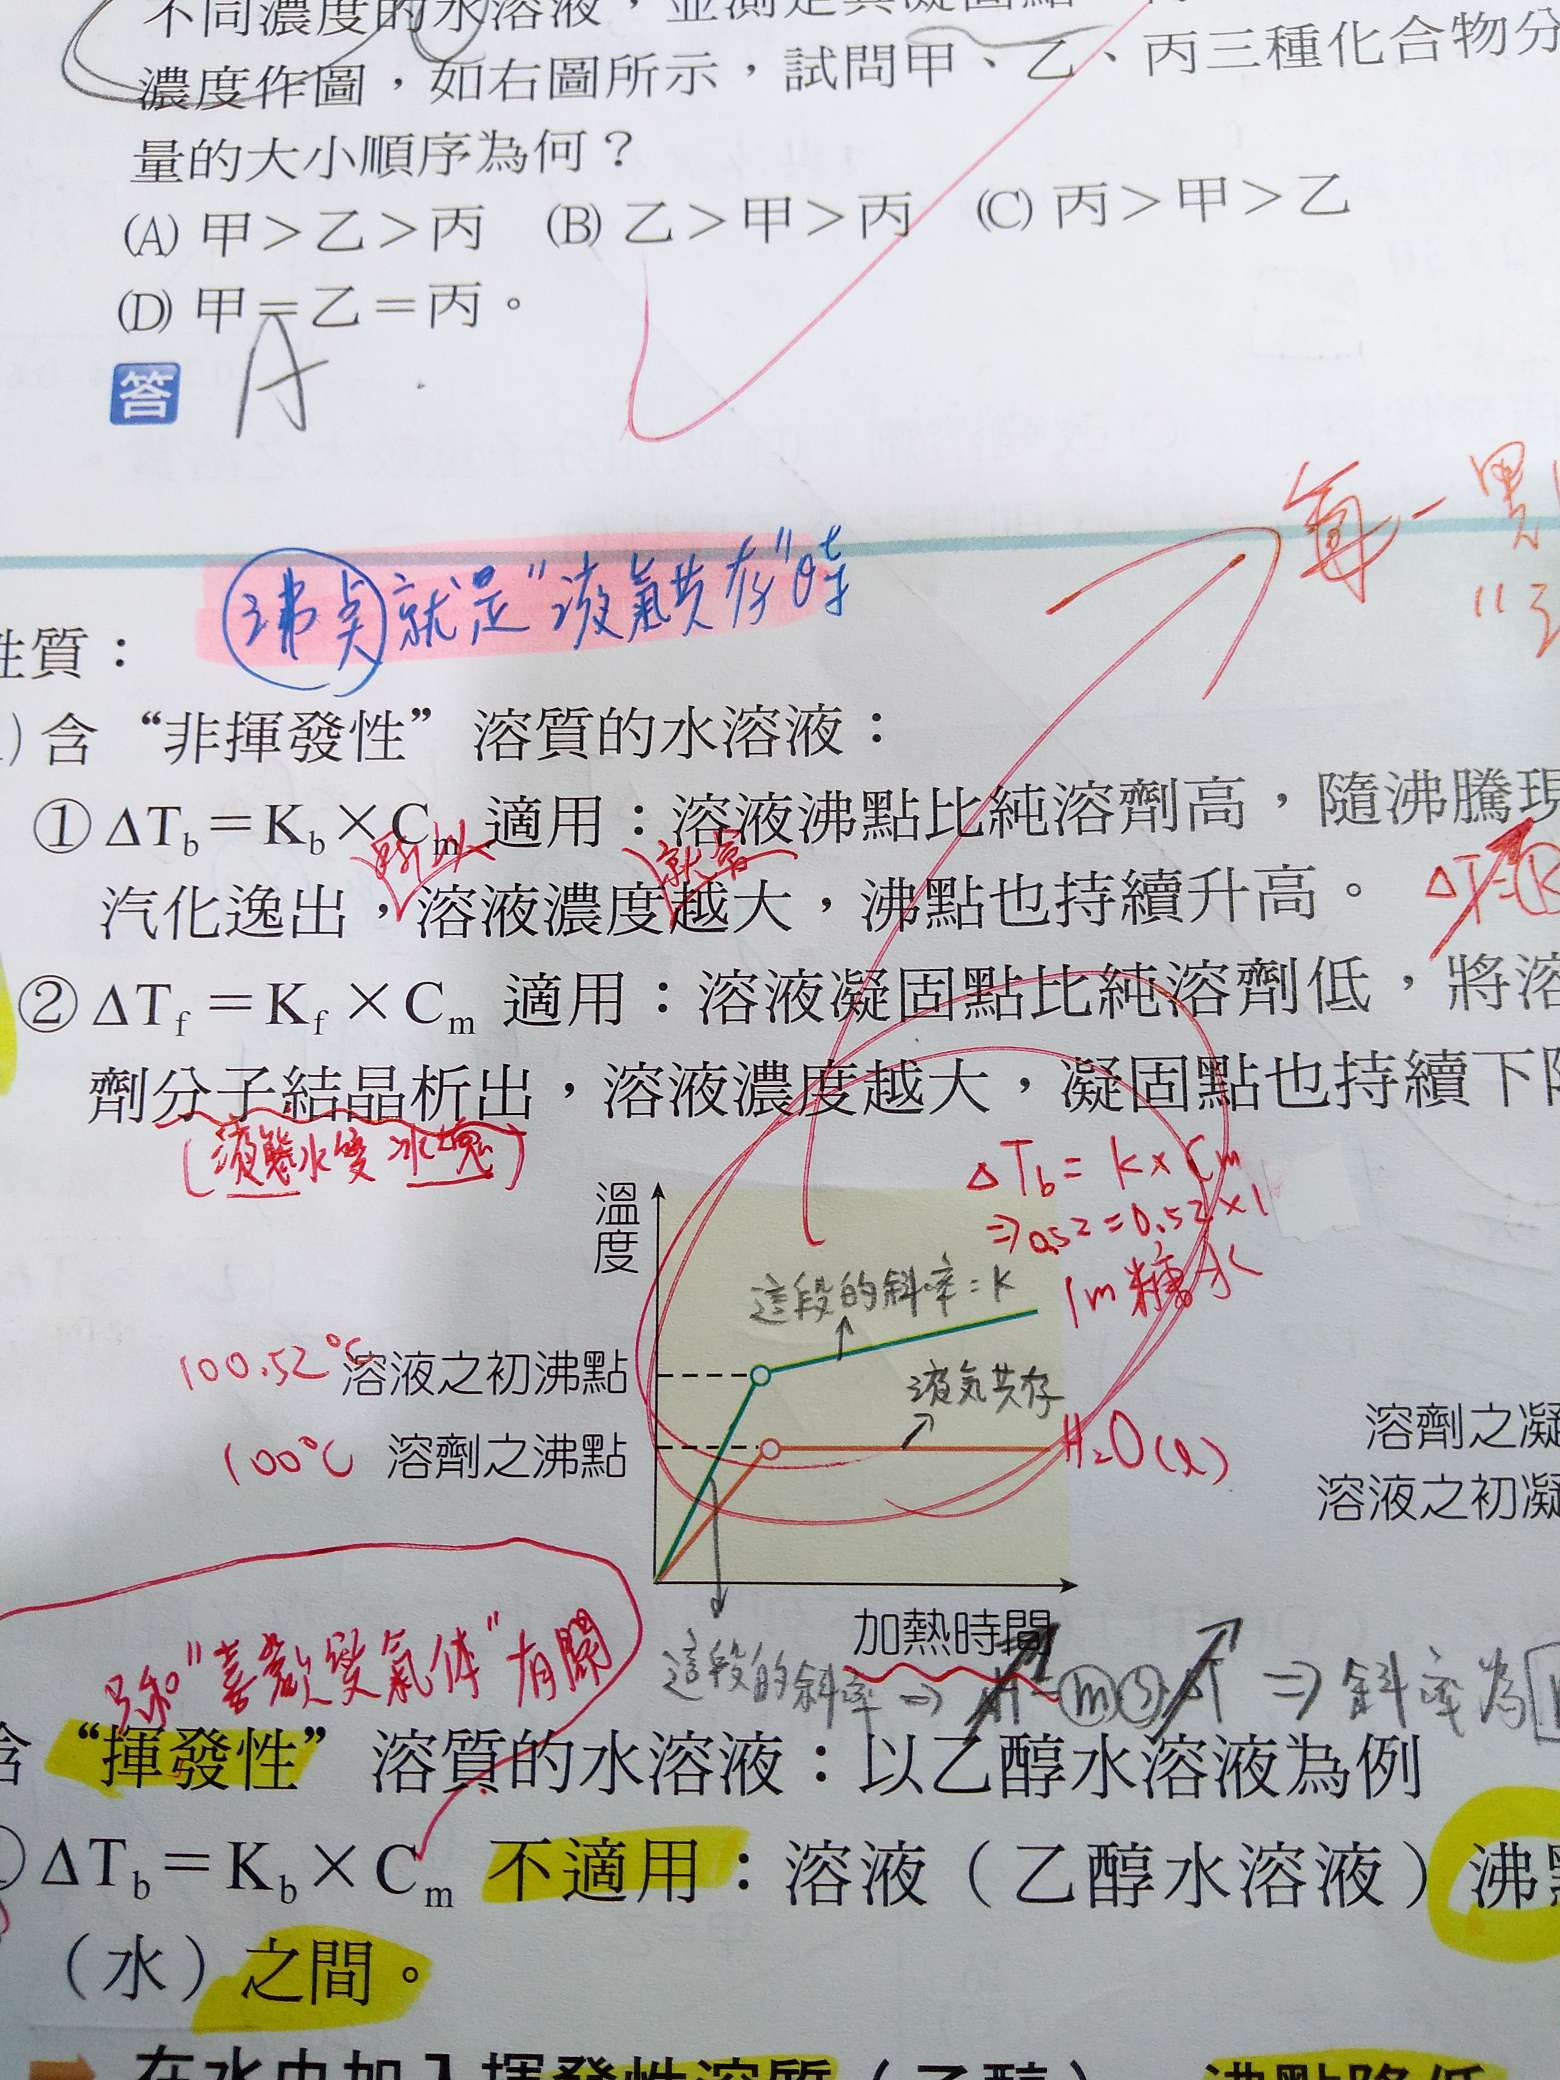 不同濃度的水溶液，並測定其凝固點
濃度作圖，如右圖所示，試問甲、乙、丙三種化合物分
量的大小順序為何？
(A) 甲＞乙＞丙 (B) 乙＞甲＞丙 (C) 丙＞甲＞乙
(D) 甲＝乙＝丙。
答 A
氧
沸点就是"液氣共存"時
性質：
)含“非揮發性”溶質的水溶液：
①ΔTb＝Kb×Cm 適用：溶液沸點比純溶劑高，隨沸騰現
所以 就會
汽化逸出，溶液濃度越大，沸點也持續升高。
②ΔTf＝Kf×Cm 適用：溶液凝固點比純溶劑低，將溶
劑分子結晶析出，溶液濃度越大，凝固點也持續下降
(液態水變冰塊)
溫度
ΔTb = K×Cm
⇒0.52=0.52×1
1m糖水
這段的斜率=K
100.52℃ 溶液之初沸點
液氣共存
100℃ 溶劑之沸點
H2O(l)
溶劑之凝
溶液之初凝
加熱時間
這段的斜率⇒ H=msΔT ⇒斜率為
跟"喜歡變氣体"有關
含“揮發性”溶質的水溶液：以乙醇水溶液為例
ΔTb＝Kb×Cm 不適用：溶液（乙醇水溶液）沸點
（水）之間。
在水中加入揮發性溶質（乙醇），沸點降低